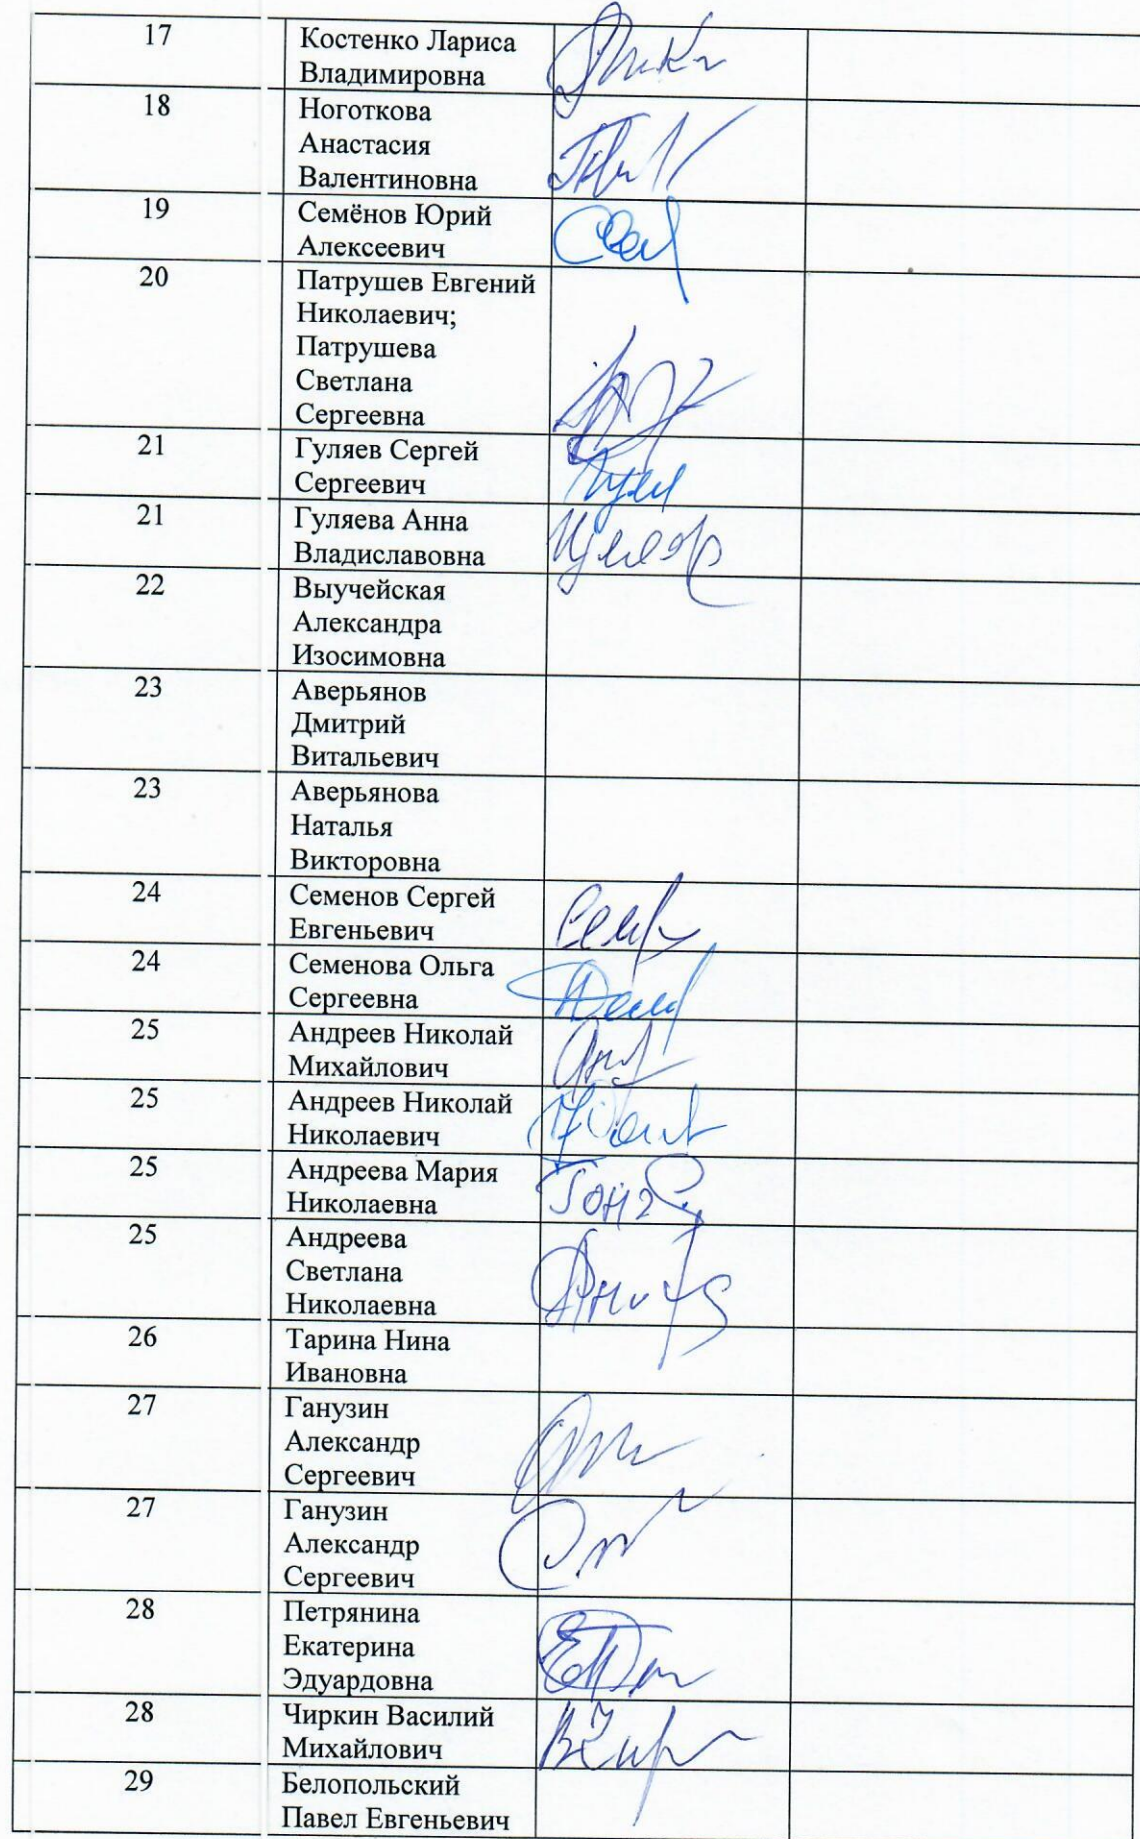 17
Костенко Лариса
Владимировна
18
Ноготкова
Анастасия
Валентиновна
19
Семёнов Юрий
Алексеевич
20
Патрушев Евгений
Николаевич;
Патрушева
Светлана
Сергеевна
21
Гуляев Сергей
Сергеевич
21
Гуляева Анна
Владиславовна
22
Выучейская
Александра
Изосимовна
23
Аверьянов
Дмитрий
Витальевич
23
Аверьянова
Наталья
Викторовна
24
Семенов Сергей
Евгеньевич
24
Семенова Ольга
Сергеевна
25
Андреев Николай
Михайлович
25
Андреев Николай
Николаевич
25
Андреева Мария
Николаевна
25
Андреева
Светлана
Николаевна
26
Тарина Нина
Ивановна
27
Ганузин
Александр
Сергеевич
27
Ганузин
Александр
Сергеевич
28
Петрянина
Екатерина
Эдуардовна
28
Чиркин Василий
Михайлович
29
Белопольский
Павел Евгеньевич